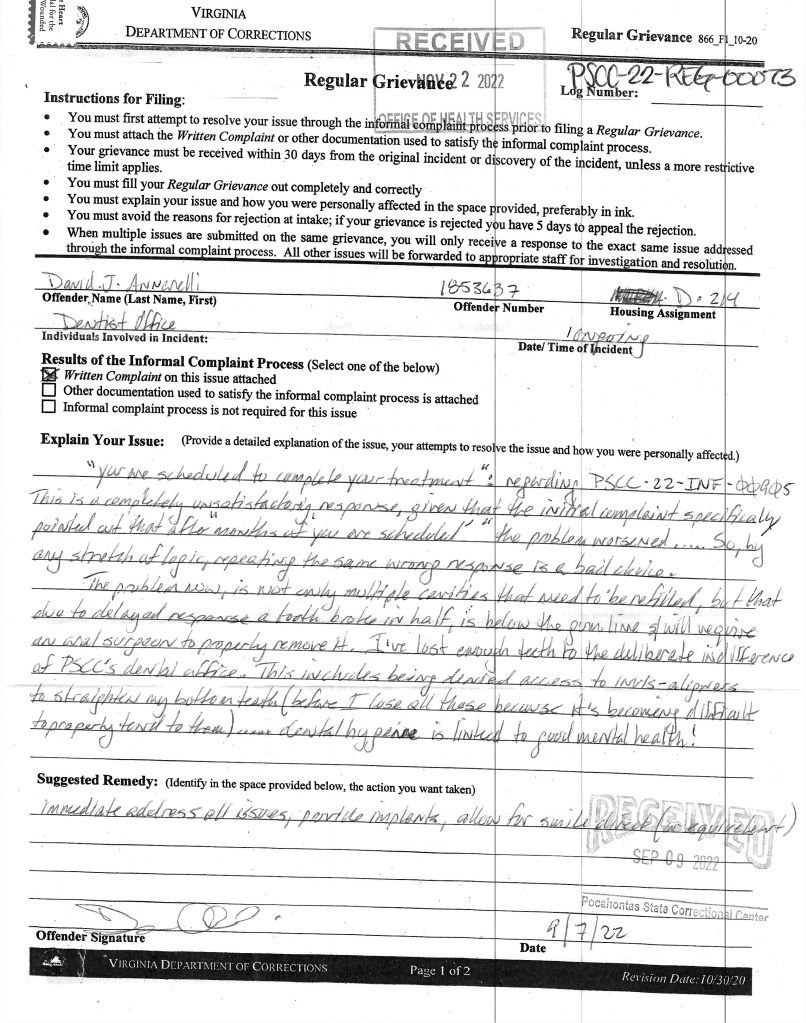 e Heart
al for the
Wounded
VIRGINIA
DEPARTMENT OF CORRECTIONS
RECEIVED
Regular Grievance 866_F1_10-20
Regular Grievance
NOV 22 2022
PSCC-22-REG-00073
Log Number:
OFFICE OF HEALTH SERVICES
Instructions for Filing:
• You must first attempt to resolve your issue through the informal complaint process prior to filing a Regular Grievance.
• You must attach the Written Complaint or other documentation used to satisfy the informal complaint process.
• Your grievance must be received within 30 days from the original incident or discovery of the incident, unless a more restrictive
time limit applies.
• You must fill your Regular Grievance out completely and correctly
• You must explain your issue and how you were personally affected in the space provided, preferably in ink.
• You must avoid the reasons for rejection at intake; if your grievance is rejected you have 5 days to appeal the rejection.
• When multiple issues are submitted on the same grievance, you will only receive a response to the exact same issue addressed
through the informal complaint process. All other issues will be forwarded to appropriate staff for investigation and resolution.
David J. Annarelli 1853637 D-214
Offender Name (Last Name, First) Offender Number Housing Assignment
Dentist Office ongoing
Individuals Involved in Incident: Date/ Time of Incident
Results of the Informal Complaint Process (Select one of the below)
Written Complaint on this issue attached
Other documentation used to satisfy the informal complaint process is attached
Informal complaint process is not required for this issue
Explain Your Issue: (Provide a detailed explanation of the issue, your attempts to resolve the issue and how you were personally affected.)
"your are scheduled to complete your treatment": regarding PSCC-22-INF-00905
This is a completely unsatisfactory response, given that the initial complaint specifically
pointed out that after "months of 'you are scheduled'" the problem worsened..... So, by
any stretch of logic, repeating the same wrong response is a bad choice.
The problem now, is not only multiple cavities that need to be refilled, but that
due to delayed response a tooth broke in half, is below the gum line & will require
an oral surgeon to properly remove it. I've lost enough teeth to the deliberate indifference
of PSCC's dental office. This includes being denied access to invis-aligners
to straighten my bottom teeth (before I lose all those because it's becoming difficult
to properly tend to them)..... dental hygiene is linked to good mental health!
Suggested Remedy: (Identify in the space provided below, the action you want taken)
immediate address all issues, provide implants, allow for smile direct (or equivelent)
RECEIVED
SEP 09 2022
Pocahontas State Correctional Center
9/7/22
Offender Signature Date
VIRGINIA DEPARTMENT OF CORRECTIONS Page 1 of 2 Revision Date: 10/30/20